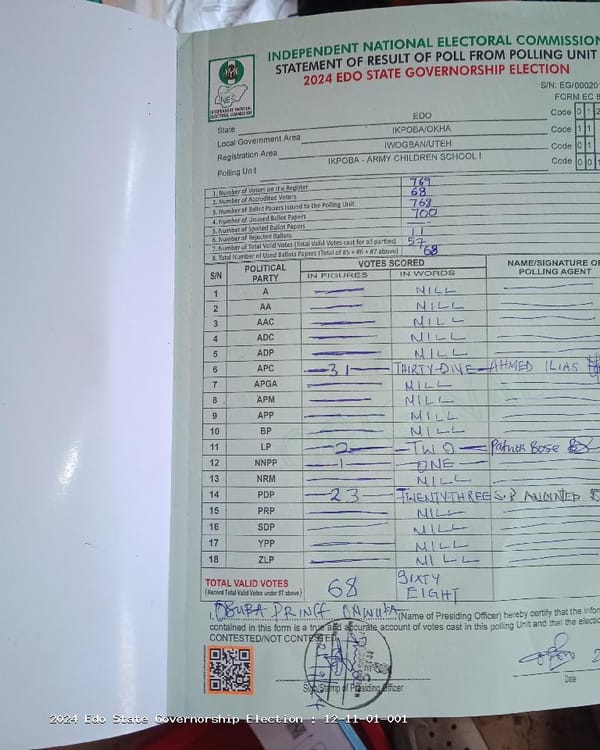 INDEPENDENT NATIONAL ELECTORAL COMMISSION
STATEMENT OF RESULT OF POLL FROM POLLING UNIT
2024 EDO STATE GOVERNORSHIP ELECTION
S/N: EG/00020
FORM EC 8
State EDO Code 0 1 2
Local Government Area IKPOBA/OKHA Code 1 1
Registration Area IWOGBAN/UTEH Code 0 1
Polling Unit IKPOBA - ARMY CHILDREN SCHOOL I Code 0 0
1. Number of Voters on the Register 769
2. Number of Accredited Voters 68
3. Number of Ballot Papers Issued to the Polling Unit 768
4. Number of Unused Ballot Papers 700
5. Number of Spoiled Ballot Papers
6. Number of Rejected Ballots 11
7. Number of Total Valid Votes (Total Valid Votes cast for all parties) 57
8. Total Number of Used Ballots Papers (Total of #5 + #6 + #7 above) 68
S/N POLITICAL PARTY VOTES SCORED NAME/SIGNATURE OF POLLING AGENT
IN FIGURES IN WORDS
1 A NILL
2 AA NILL
3 AAC NILL
4 ADC NILL
5 ADP NILL
6 APC 31 THIRTY-ONE AHMED ILIAS
7 APGA NILL
8 APM NILL
9 APP NILL
10 BP NILL
11 LP 2 TWO Patrick Bose
12 NNPP 1 ONE
13 NRM NILL
14 PDP 23 TWENTY-THREE S.P ANOINTED
15 PRP NILL
16 SDP NILL
17 YPP NILL
18 ZLP NILL
TOTAL VALID VOTES 68 SIXTY EIGHT
(Record Total Valid Votes under #7 above)
I, PRINCE (Name of Presiding Officer) hereby certify that the
contained in this form is a true and accurate account of votes cast in this polling Unit and that the
CONTESTED/NOT CONTESTED
Sign/Stamp of Presiding Officer
Date
2024 Edo State Governorship Election : 12-11-01-001